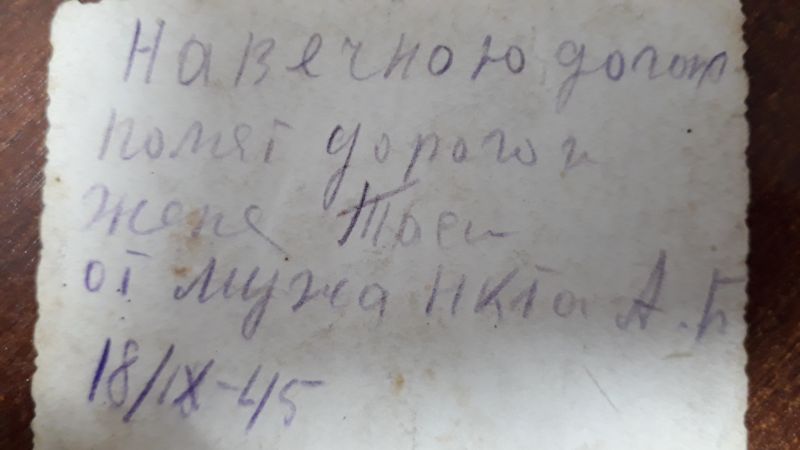 На вечною долгою
помят дорогои
жене Таеи
от мужа НКТа А.Б
18/IX-45